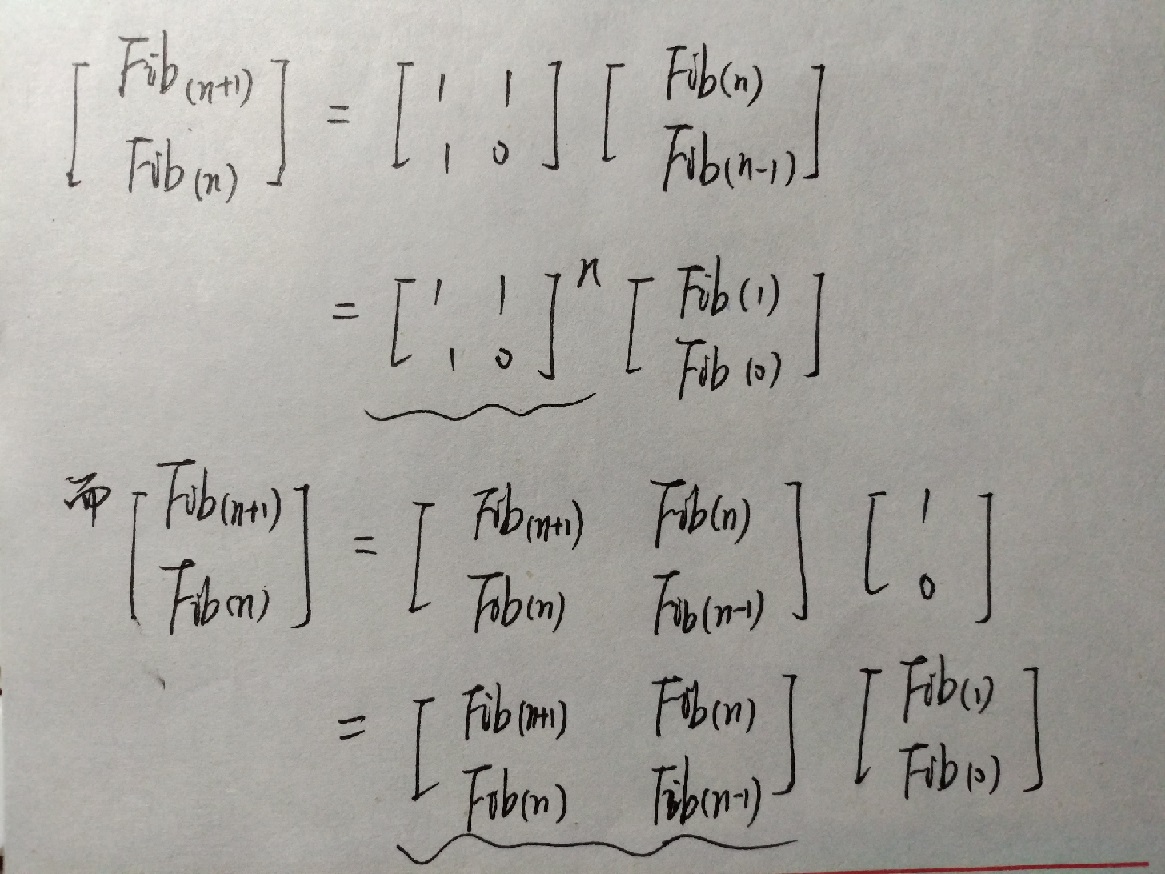 [Fib(n+1) Fib(n)] = [1 1 1 0] [Fib(n) Fib(n-1)]
= [1 1 1 0]^n [Fib(1) Fib(0)]
而 [Fib(n+1) Fib(n)] = [Fib(n+1) Fib(n) Fib(n) Fib(n-1)] [1 0]
= [Fib(n+1) Fib(n) Fib(n) Fib(n-1)] [Fib(1) Fib(0)]